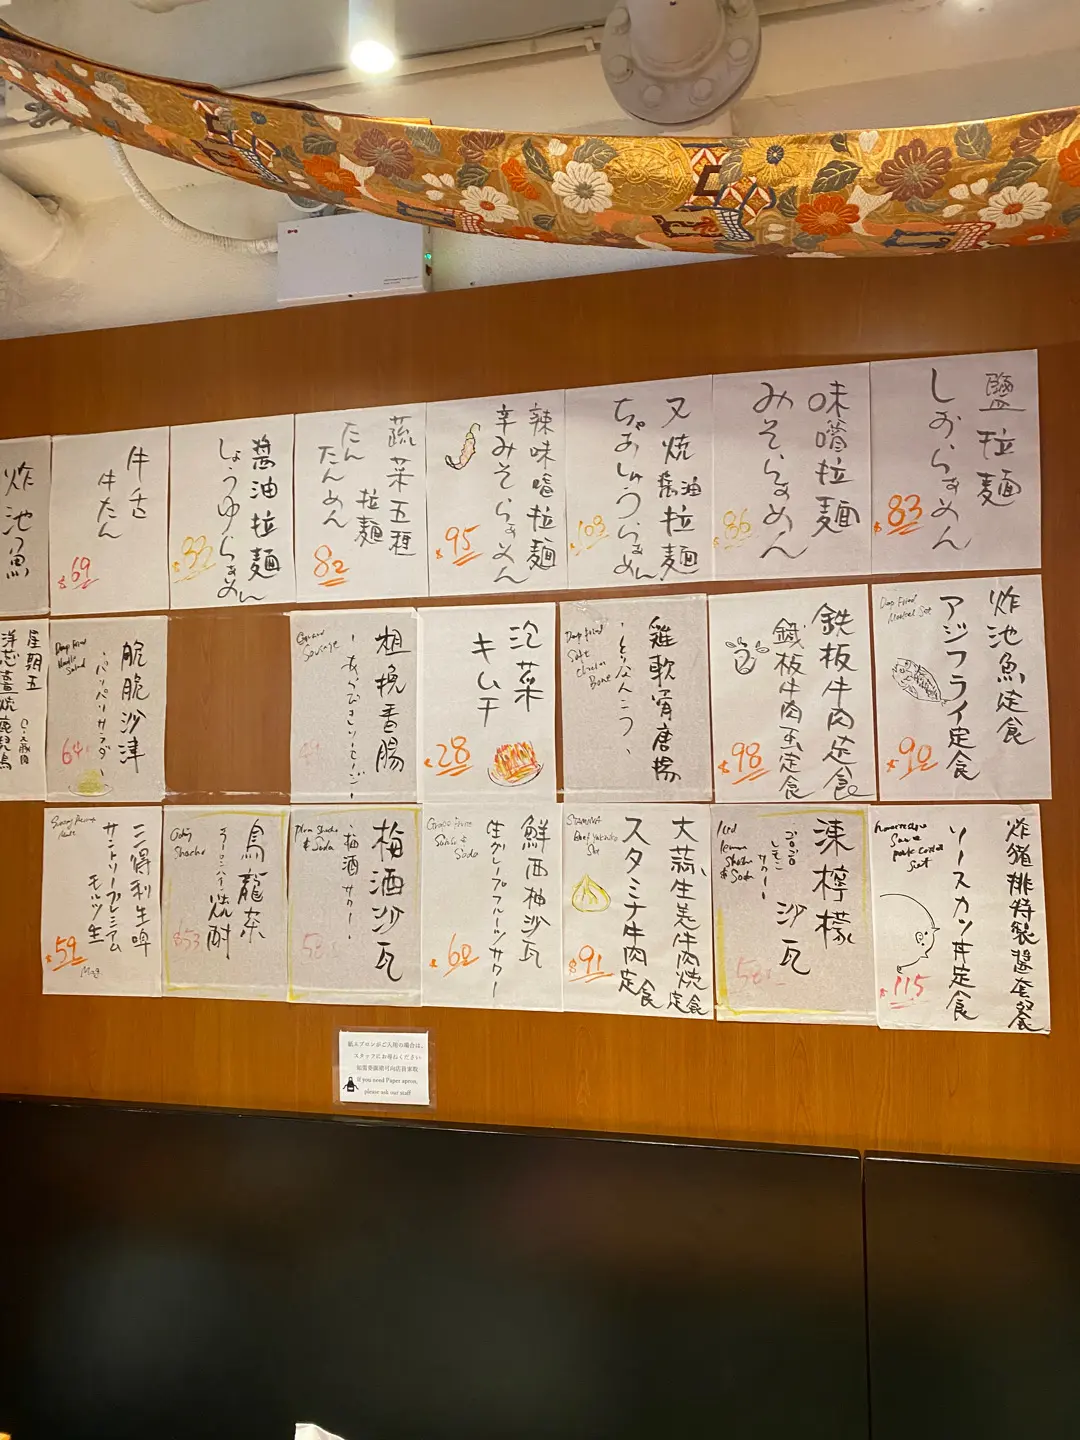 鹽拉麺
しおらぁめん
$83
味噌拉麺
みそらぁめん
$86
叉焼醤油拉麺
ちゃあしゅうらぁめん
$103
辣味噌拉麺
辛みそらぁめん
$95
蔬菜五種
拉麺
たん
たんめん
82
醤油拉麺
しょうゆらぁめん
牛舌
牛たん
$69
炸池魚
炸池魚定食
アジフライ定食
Deep Fried
Set
$90
鉄板牛肉定食
鐵板牛肉蛋定食
$98
雞軟骨唐揚
Deep fried
Soft
Chicken
Bone
泡菜
キムチ
$28
粗挽香腸
Sausage
脆脆沙津
・パリパリサラダ・
Deep fried
Noodle
Salad
64
星期五
炸豬排特製醬套餐
ソースカツ丼定食
Sauce
pork
Set
$115
凍檸檬
沙瓦
ゴロゴロ
レモン
サワー
Iced
lemon
& Soda
58
大蒜生姜牛肉焼定食
スタミナ牛肉定食
STAMINA
Beef Yakiniku
Set
$91
鮮西柚沙瓦
生グレープフルーツサワー
$60
梅酒沙瓦
・梅酒サワー・
& Soda
烏龍茶
焼酎
ウーロンハイ
$53
三得利生啤
サントリープレミアム
モルツ生
Mug
$59
紙エプロンがご入用の場合は、
スタッフにお尋ねください
如需要圍裙可向店員索取
If you need Paper apron,
please ask our staff